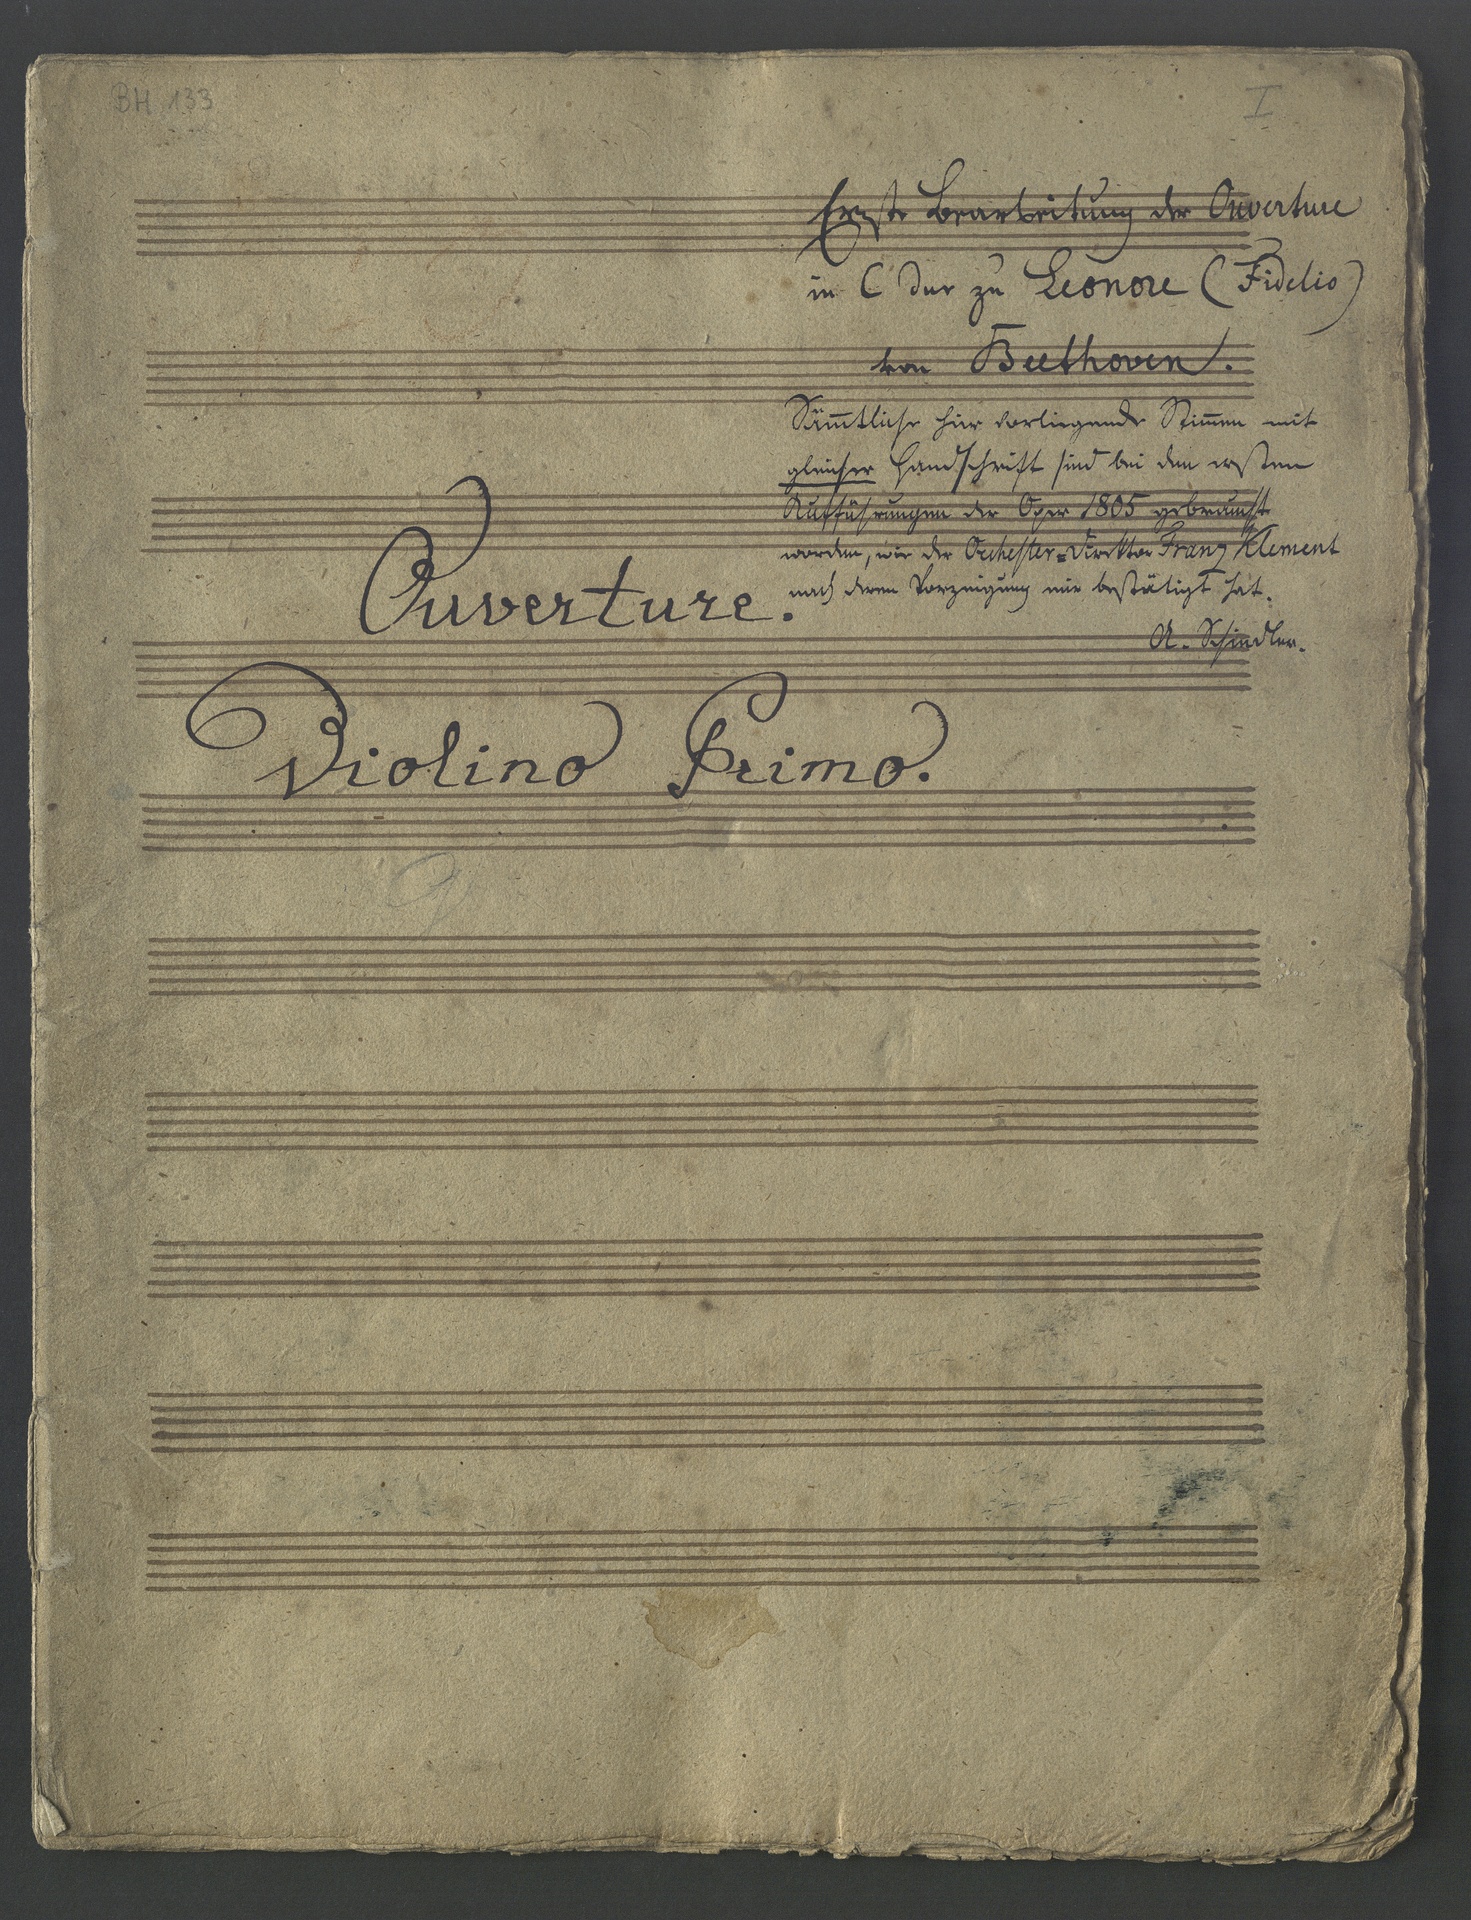 BH 133
I
Erste Bearbeitung der Ouverture
in C dur zu Leonore (Fidelio)
von Beethoven.
Sämtliche hier vorliegende Stimmen mit
gleicher Handschrift sind bei den ersten
Aufführungen der Oper 1805 gebraucht
worden, wie der Orchester=Direktor Franz Klement
nach deren Vorzeigung mir bestätigt hat.
A. Schindler.
Ouverture.
Violino Primo.